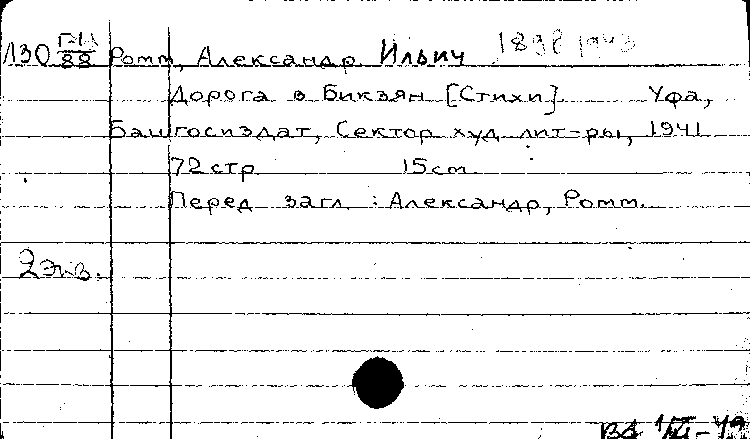 Л30 Ромм, Александр Ильич 1898 1943
88
Дорога в Бикзян [Стихи] Уфа,
Башгосиздат, Сектор худ лит-ры, 1941
72 стр 15 см
Перед загл : Александр, Ромм.
2 экз.